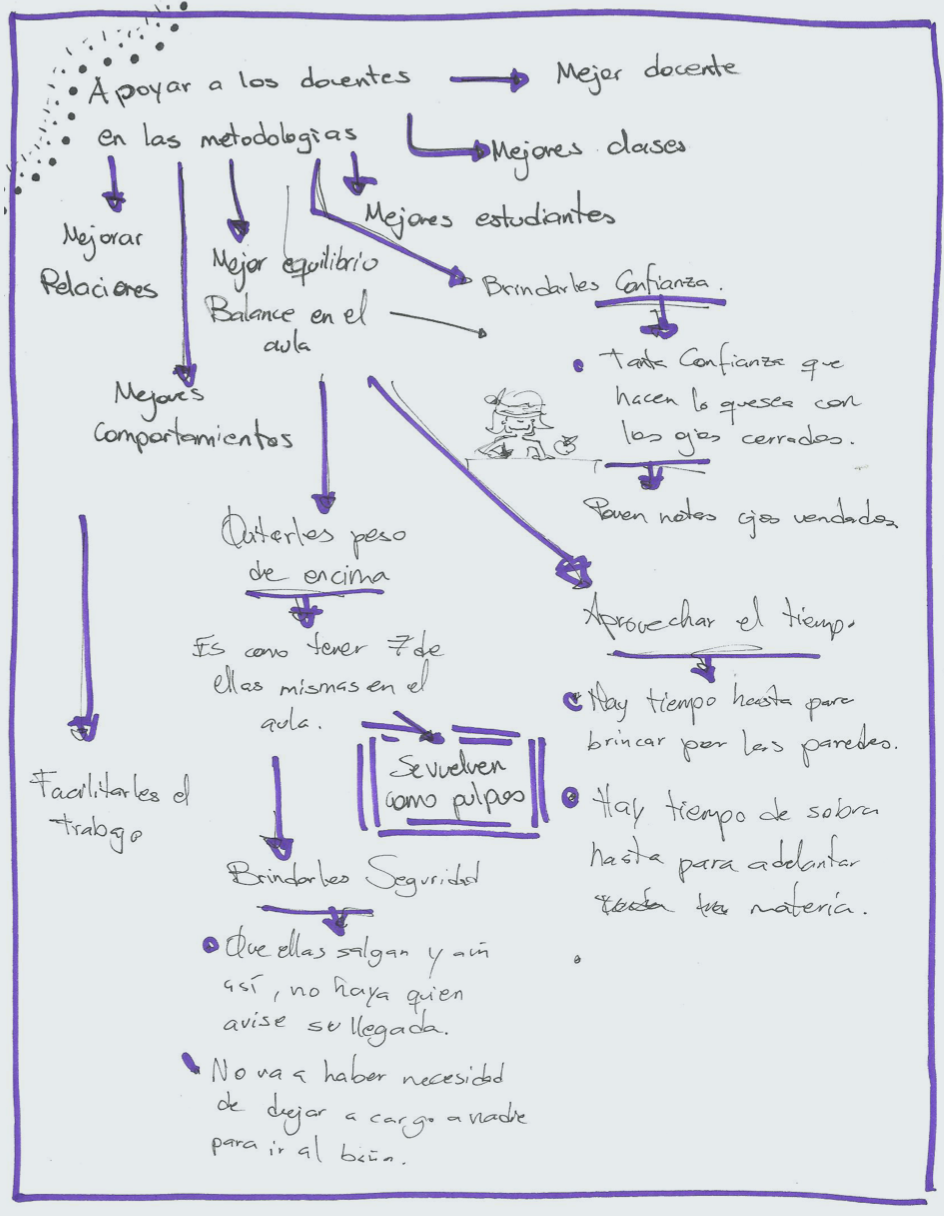 Apoyar a los docentes
en las metodologías
Mejor docente
Mejores clases
Mejores estudiantes
Mejorar
Relaciones
Mejor equilibrio
Balance en el
aula
Brindarles Confianza.
Tanta Confianza que
hacen lo quesea con
los ojos cerrados.
Ponen notas ojos vendados
Mejores
Comportamientos
Quitarles peso
de encima
Es como tener 7 de
ellas mismas en el
aula.
Se vuelven
como pulpos
Aprovechar el tiempo.
Hay tiempo hasta para
brincar por las paredes.
Hay tiempo de sobra
hasta para adelantar
materia.
Facilitarles el
trabajo
Brindarles Seguridad
Que ellas salgan y aún
así, no haya quien
avise su llegada.
No va a haber necesidad
de dejar a cargo a nadie
para ir al baño.